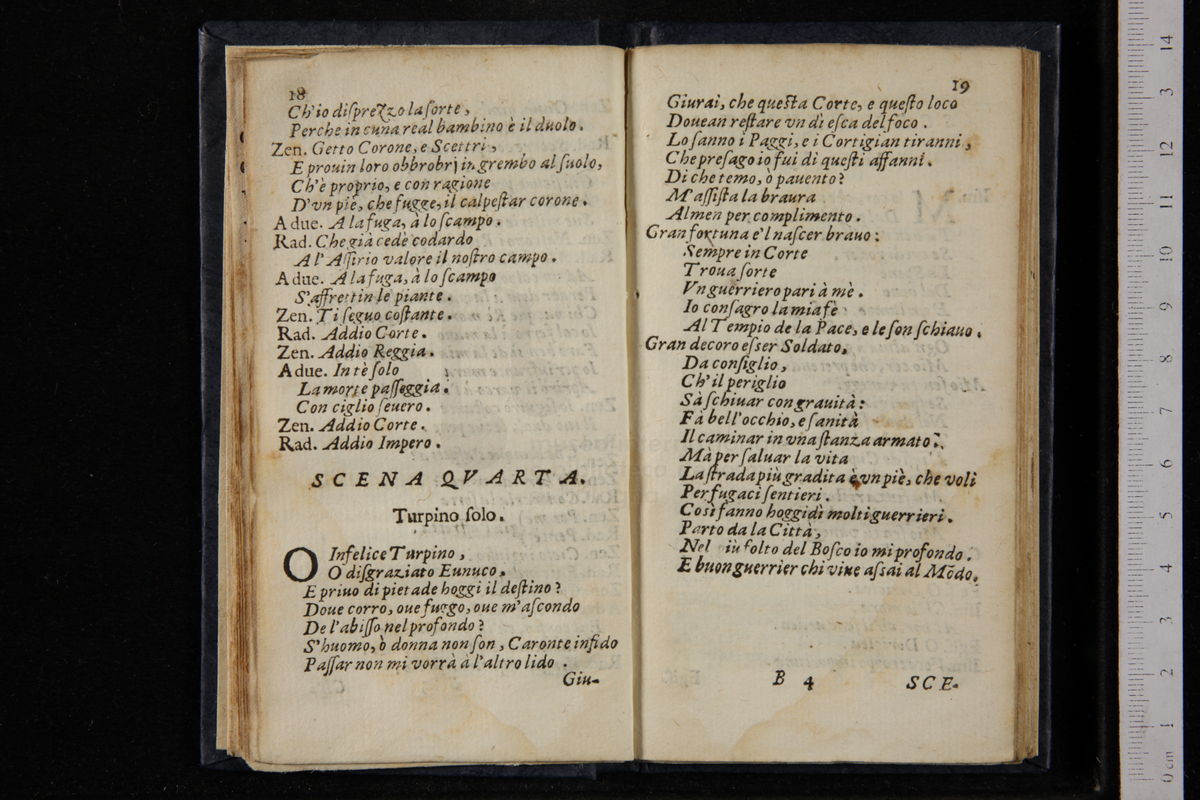 18
Ch'io disprezzo la sorte,
Perche in cuna real bambino è il duolo.
Zen. Getto Corone, e Scettri,
E prouin loro obbrobrj in grembo al suolo,
Ch'è proprio, e con ragione
D'vn piè, che fugge, il calpestar corone.
A due. A la fuga, à lo scampo.
Rad. Che già cedè codardo
A l'Assirio valore il nostro campo.
A due. A la fuga, à lo scampo
S'affrettin le piante.
Zen. Ti seguo costante.
Rad. Addio Corte.
Zen. Addio Reggia.
A due. In tè solo
La morte passeggia.
Con ciglio seuero.
Zen. Addio Corte.
Rad. Addio Impero.
SCENA QVARTA.
Turpino solo.
O Infelice Turpino,
O disgraziato Eunuco.
E priuo di pietade hoggi il destino?
Doue corro, oue fuggo, oue m'ascondo
De l'abisso nel profondo?
S'huomo, ò donna non son, Caronte infido
Passar non mi vorrà à l'altro lido.
Giu-
19
Giurai, che questa Corte, e questo loco
Douean restare vn dì esca del foco.
Lo sanno i Paggi, e i Cortigian tiranni,
Che presago io fui di questi affanni.
Di che temo, ò pauento?
M'assista la braura
Almen per complimento.
Gran fortuna e'l nascer brauo:
Sempre in Corte
Troua sorte
Vn guerriero pari à mè.
Io consagro la mia fè
Al Tempio de la Pace, e le son schiauo.
Gran decoro esser Soldato,
Da consiglio,
Ch'il periglio
Sà schiuar con grauità:
Fà bell'occhio, e sanità
Il caminar in vna stanza armato.
Mà per saluar la vita
La strada più gradita è vn piè, che voli
Per fugaci sentieri.
Così fanno hoggidì molti guerrieri.
Parto da la Città,
Nel iù folto del Bosco io mi profondo.
E buon guerrier chi viue assai al Mõdo.
B 4
SCE-
14
3
12
11
10
9
8
7
6
5
4
3
2
1
0 cm